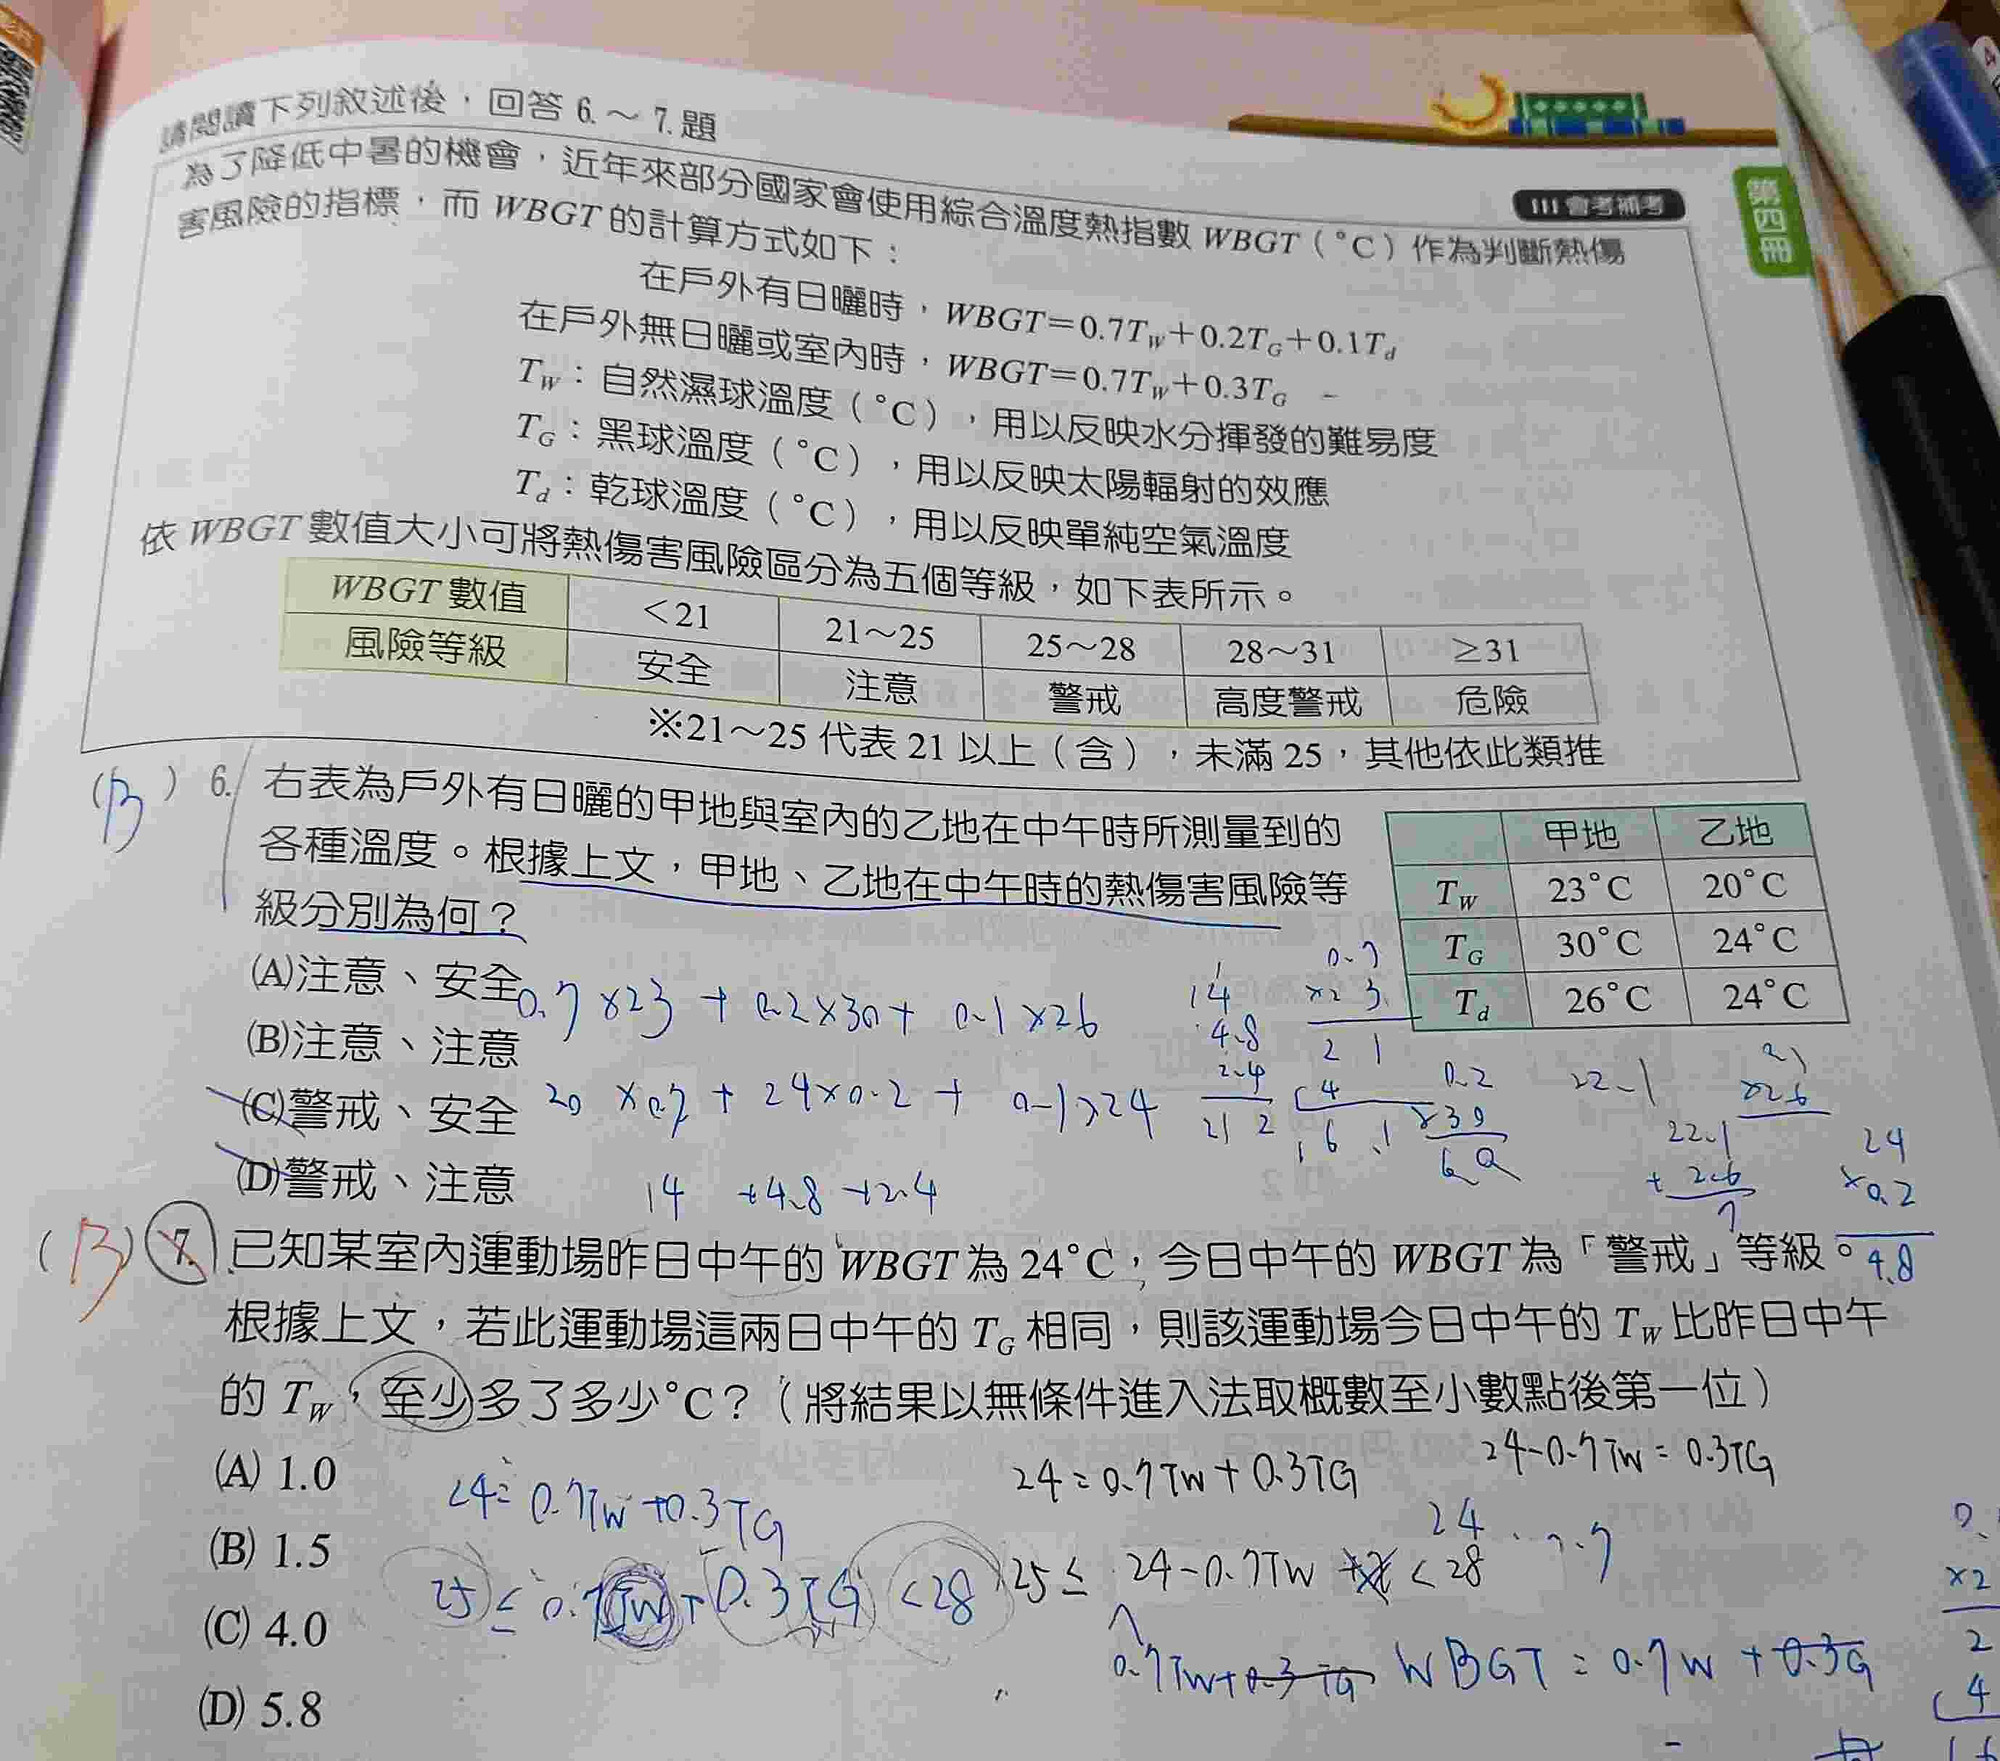 請閱讀下列敘述後，回答 6.～7.題
111 會考補考
第四冊
為了降低中暑的機會，近年來部分國家會使用綜合溫度熱指數 WBGT（°C）作為判斷熱傷
害風險的指標，而 WBGT 的計算方式如下：
在戶外有日曬時，WBGT＝0.7Tw＋0.2TG＋0.1Td
在戶外無日曬或室內時，WBGT＝0.7Tw＋0.3TG
Tw：自然濕球溫度（°C），用以反映水分揮發的難易度
TG：黑球溫度（°C），用以反映太陽輻射的效應
Td：乾球溫度（°C），用以反映單純空氣溫度
依 WBGT 數值大小可將熱傷害風險區分為五個等級，如下表所示。
WBGT 數值 ＜21 21～25 25～28 28～31 ≥31
風險等級 安全 注意 警戒 高度警戒 危險
※21～25 代表 21 以上（含），未滿 25，其他依此類推
(B) 6. 右表為戶外有日曬的甲地與室內的乙地在中午時所測量到的
各種溫度。根據上文，甲地、乙地在中午時的熱傷害風險等
級分別為何？
甲地 乙地
Tw 23°C 20°C
TG 30°C 24°C
Td 26°C 24°C
(A)注意、安全
(B)注意、注意
(C)警戒、安全
(D)警戒、注意
0.7×23+0.2×30+0.1×26
20×0.7+24×0.2+0.1×24
14+4.8+2.4
14
4.8
2.4
21 2
0.7
×23
21
14
16.1
0.2
×30
6.0
22.1
22.1
+2.6
7
24
×0.2
4.8
(B) 7. 已知某室內運動場昨日中午的 WBGT 為 24°C，今日中午的 WBGT 為「警戒」等級。
根據上文，若此運動場這兩日中午的 TG 相同，則該運動場今日中午的 Tw 比昨日中午
的 Tw，至少多了多少°C？（將結果以無條件進入法取概數至小數點後第一位）
(A) 1.0
(B) 1.5
(C) 4.0
(D) 5.8
24=0.7Tw+0.3TG
25≤0.7Tw+0.3TG<28
24=0.7Tw+0.3TG
24-0.7Tw=0.3TG
25≤24-0.7Tw
<28
24
0.7Tw+0.3TG
WBGT=0.7W+0.3G